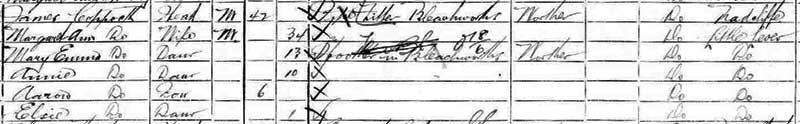 James Head M 42 Bleachworks Worker Do Radcliffe
Margaret Ann Do Wife M 34 Do Little Lever
Mary Emma Do Daur 13 in Bleachworks Worker Do Do
Annie Do Daur 10 Do Do
Aaron Do Son 6 Do Do
Elsie Do Daur 1 Do Do